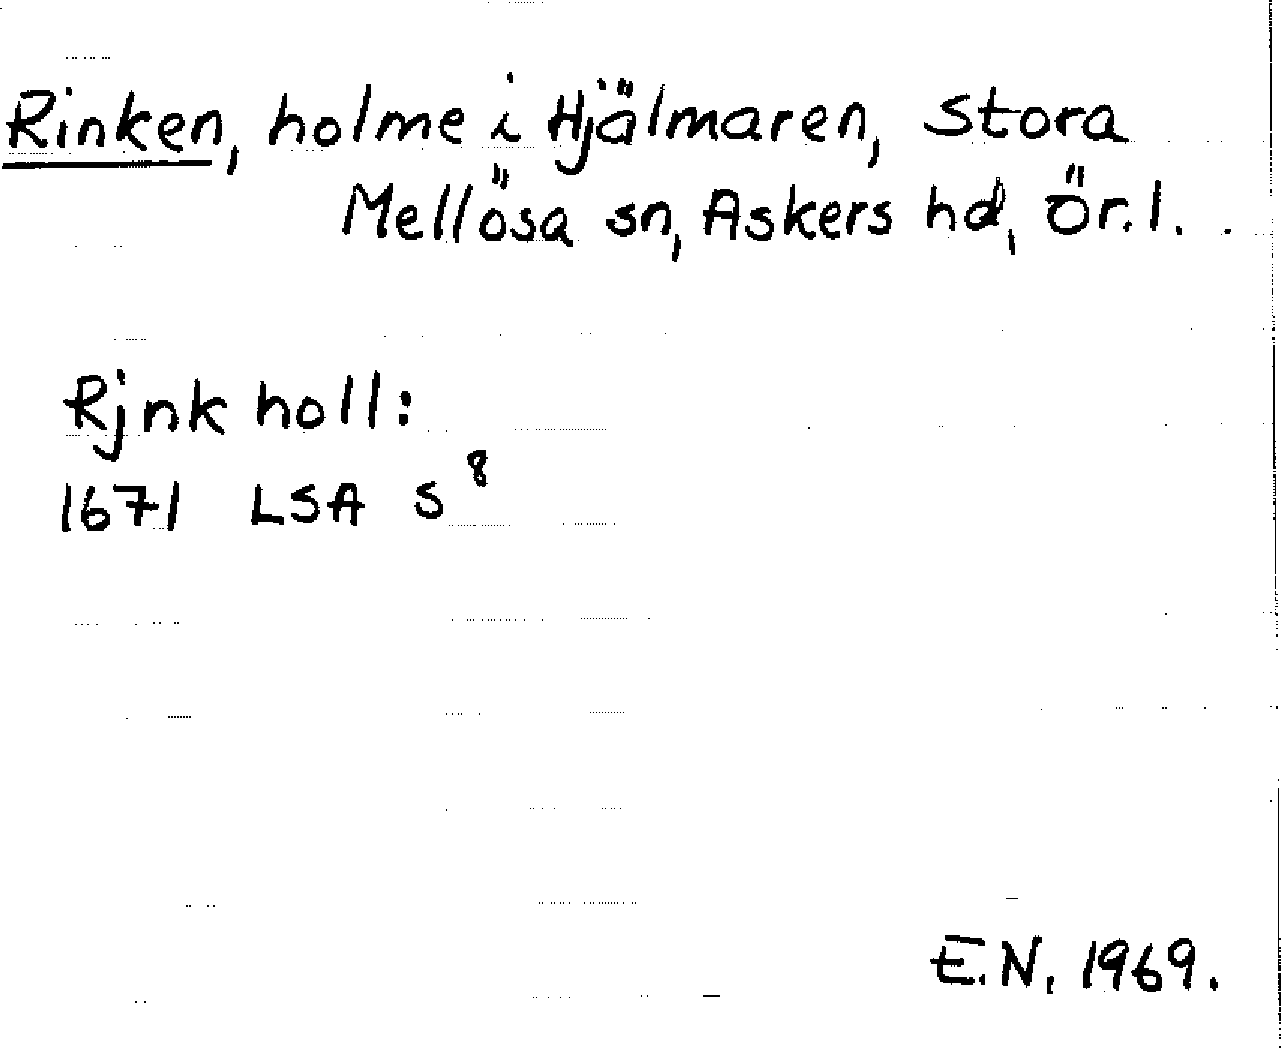 Rinken, holme i Hjälmaren, Stora
Mellösa sn, Askers hd, Ör.l.
Rjnk holl:
1671 LSA S⁸
E.N. 1969.